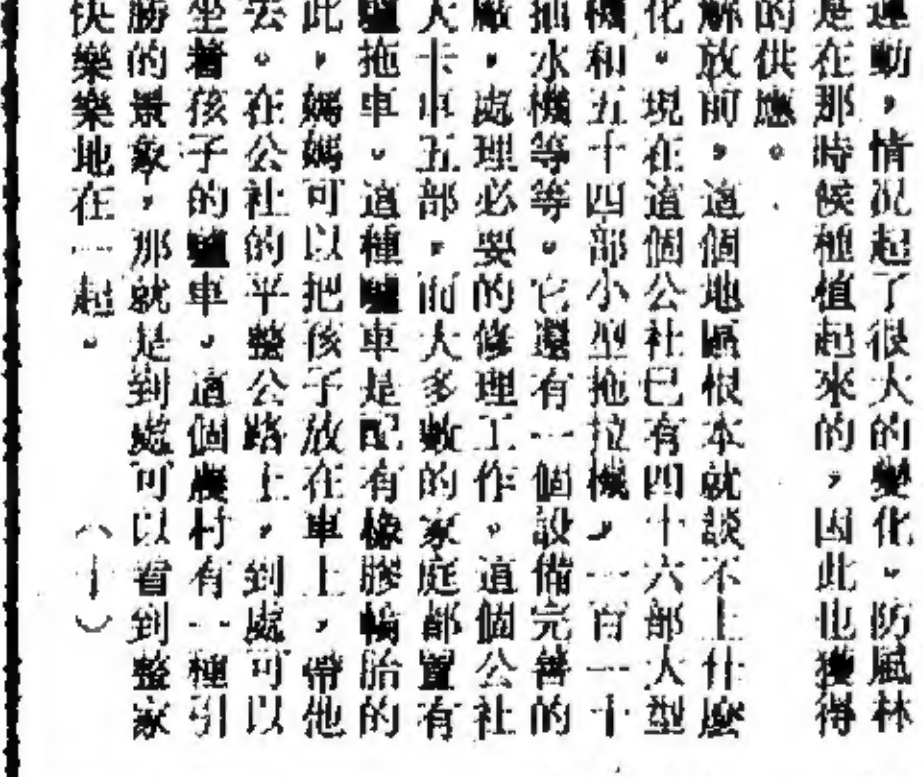 運動，情況起了很大的變化。防風林
是在那時候種植起來的，因此也獲得
的供應。
解放前，這個地區根本就談不上什麼
化。現在這個公社已有四十六部大型
機和五十四部小型拖拉機，一百一十
抽水機等等。它還有一個設備完善的
廠，處理必要的修理工作。這個公社
大卡車五部，而大多數的家庭都置有
驢拖車。這種驢車是配有橡膠輪胎的
此，媽媽可以把孩子放在車上，帶他
去。在公社的平整公路上，到處可以
坐着孩子的驢車。這個農村有一種引
勝的景象，那就是到處可以看到整家
快樂樂地在一起。
（十）